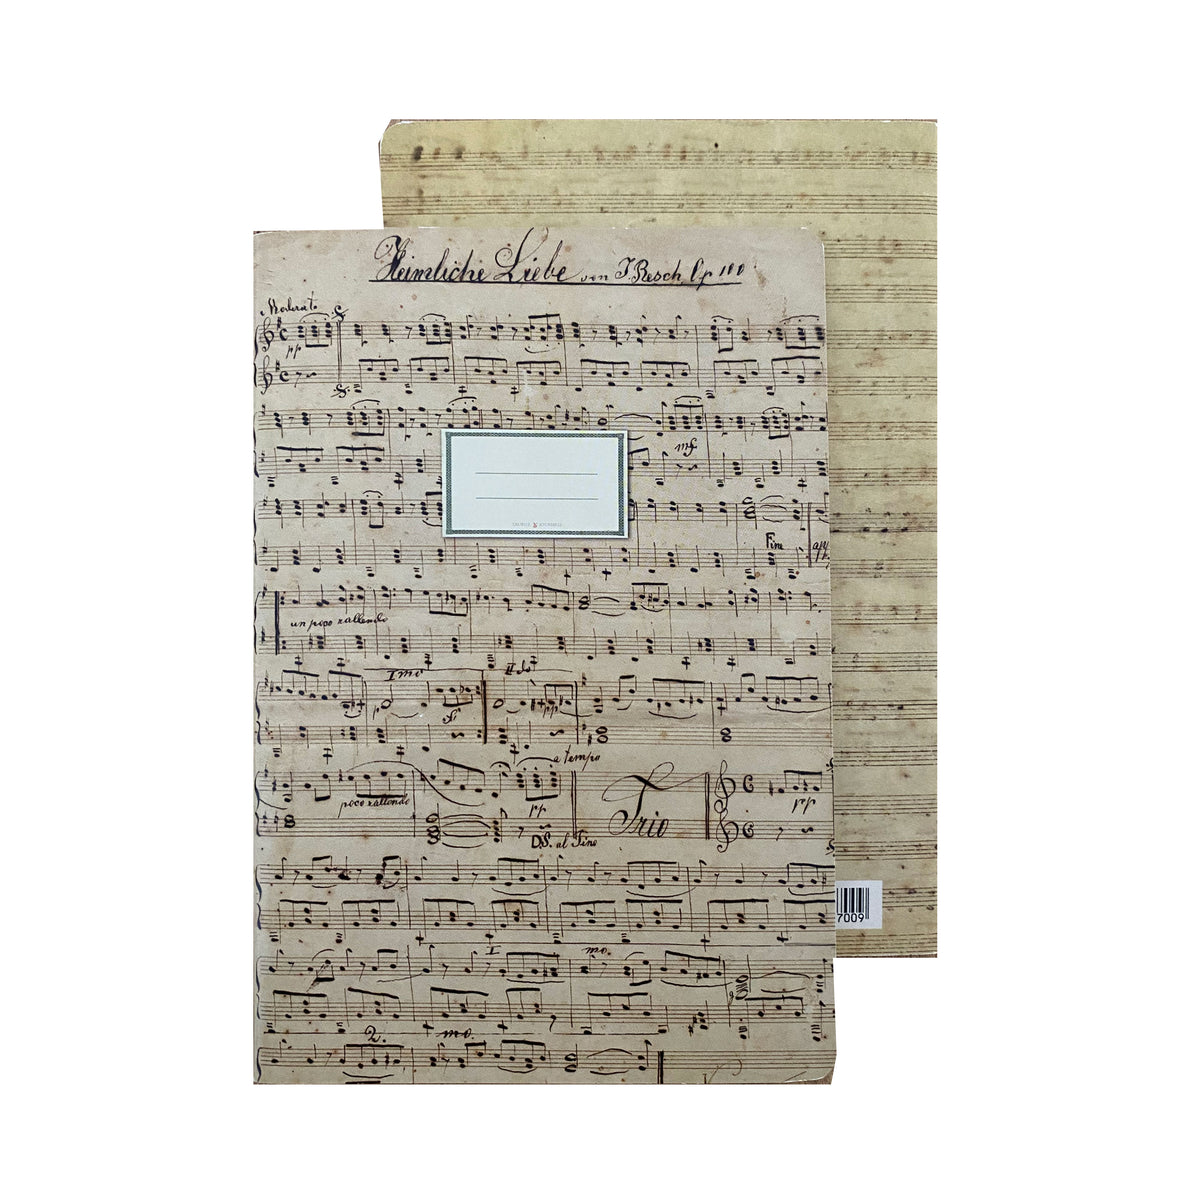 Heimliche Liebe von J. Resch, Op 100
Moderato
pp
mf
Fine
un poco rallendo
Imo
II do
p
pp
a tempo
poco rallendo
pp
Trio
pp
D.S. al Fine
7009
I mo.
2. mo.